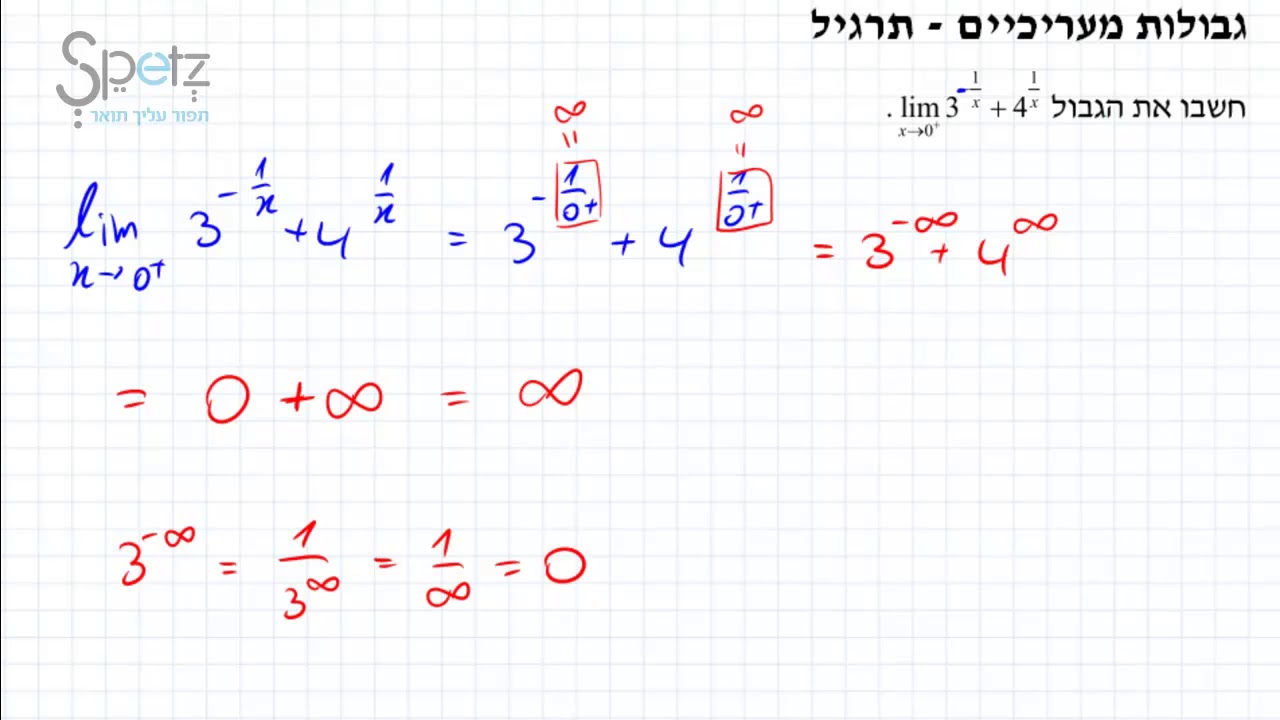 גבולות מעריכיים - תרגיל
Spetz
תפור עליך תואר
חשבו את הגבול lim x→0⁺ 3^(-1/x) + 4^(1/x) .
∞ ∞
= =
lim x→0⁺ 3^(-1/x) + 4^(1/x) = 3^(-1/0⁺) + 4^(1/0⁺) = 3^(-∞) + 4^∞
= 0 + ∞ = ∞
3^(-∞) = 1/3^∞ = 1/∞ = 0